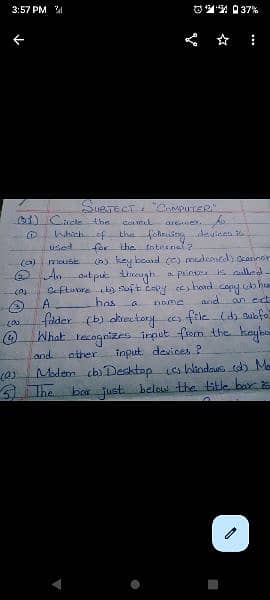 3:57 PM
37%
SUBJECT : "COMPUTER"
Q1) Circle the correct answer.
① Which of the following devices is
used for the internet?
(a) mouse (b) keyboard (c) modem (d) Scanner
② An output through a printer is called
(a) Software (b) Soft copy (c) hard copy (d)
③ A ___ has a name and an
(a) folder (b) directory (c) file (d)
④ What recognizes input from the
and other input devices ?
(a) Modem (b) Desktop (c) Windows (d)
5) The bar just below the title bar is